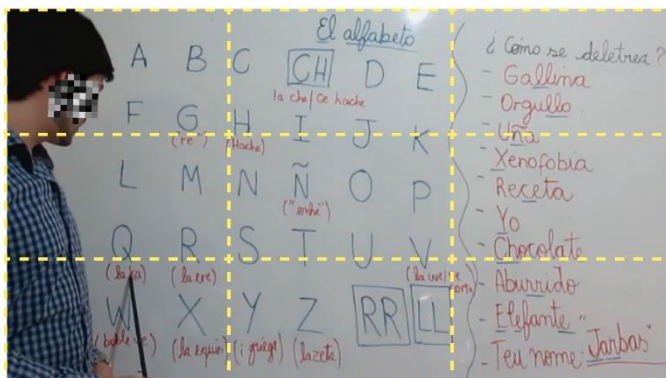 El alfabeto
A B C CH D E
la che/ce hache
F G H I J K
("re") (Hache)
L M N Ñ O P
("enhe")
Q R S T U V
(la ere) (la uve)
W X Y Z RR LL
(la equis) (i griega) (la zeta)
¿Cómo se deletrea?
- Gallina
- Orgullo
- Uña
- Xenofobia
- Receta
- Yo
- Chocolate
- Aburrido
- Elefante
- Teu nome: "Jarbas"